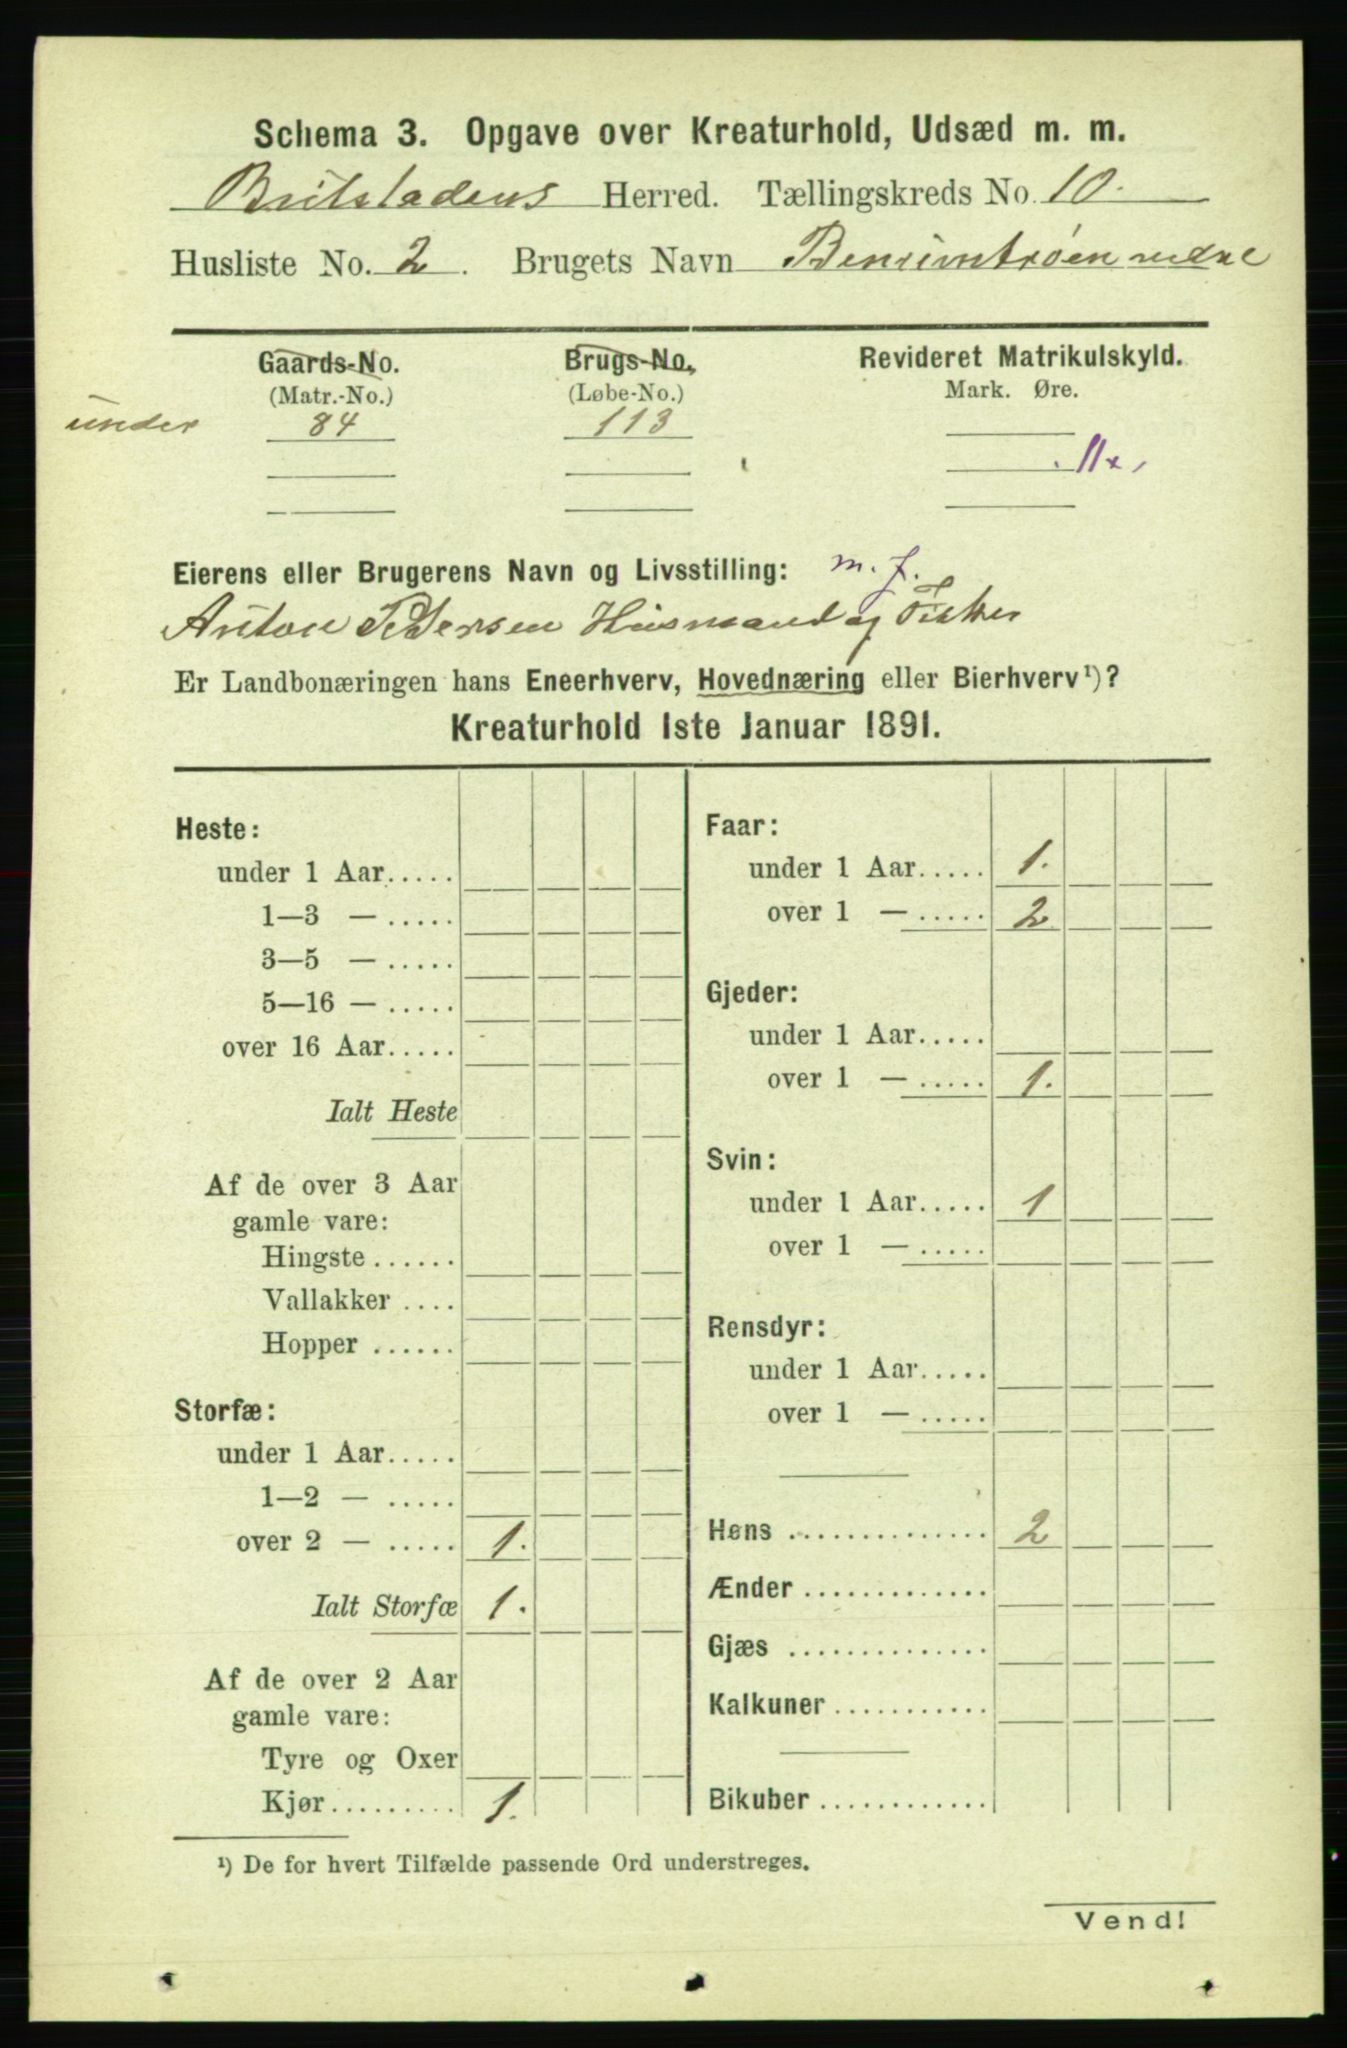 Schema 3. Opgave over Kreaturhold, Udsæd m. m.
Herred. Tællingskreds No. 10.
Husliste No. 2. Brugets Navn
Gaards-No. Brugs-No. Revideret Matrikulskyld.
(Matr.-No.) (Løbe-No.) Mark. Øre.
under 84 113
Eierens eller Brugerens Navn og Livsstilling: m. f.
Anton Pedersen Husmand og Fisker
Er Landbonæringen hans Eneerhverv, Hovednæring eller Bierhverv¹)?
Kreaturhold 1ste Januar 1891.
Heste:
under 1 Aar.....
1—3 — .....
3—5 — .....
5—16 — .....
over 16 Aar.....
Ialt Heste
Af de over 3 Aar
gamle vare:
Hingste ......
Vallakker ....
Hopper ......
Storfæ:
under 1 Aar.....
1—2 — .....
over 2 — ..... 1.
Ialt Storfæ 1.
Af de over 2 Aar
gamle vare:
Tyre og Oxer
Kjør.......... 1.
Faar:
under 1 Aar..... 1.
over 1 — ..... 2
Gjeder:
under 1 Aar.....
over 1 — ..... 1.
Svin:
under 1 Aar..... 1
over 1 — .....
Rensdyr:
under 1 Aar.....
over 1 — .....
Høns .............. 2
Ænder .............
Gjæs ..............
Kalkuner ...........
Bikuber ............
¹) De for hvert Tilfælde passende Ord understreges.
Vend!